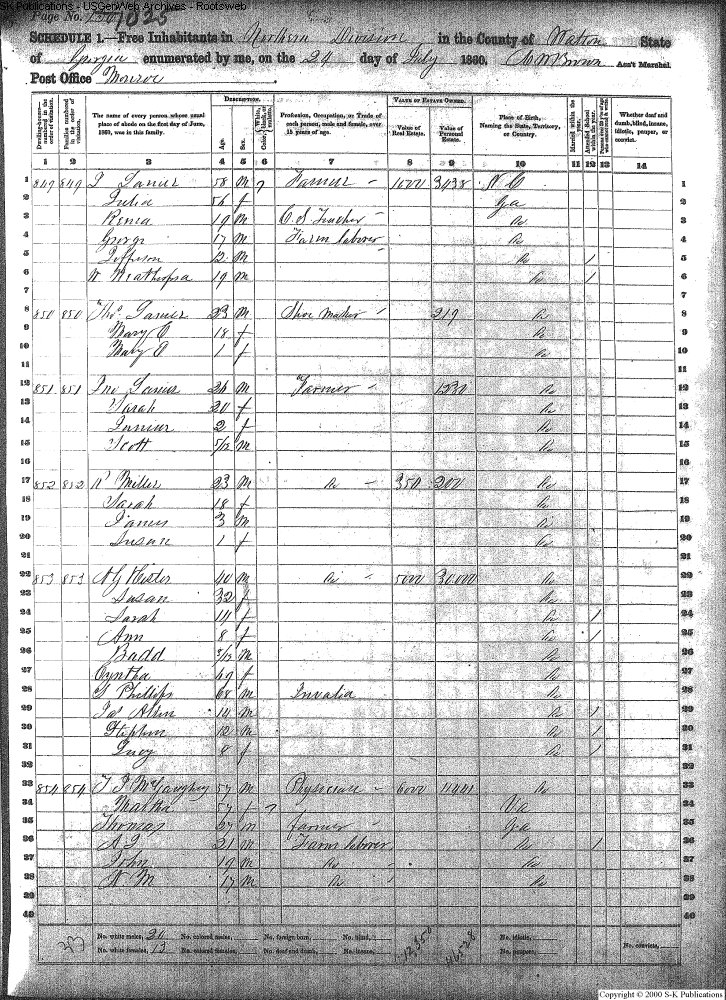 S-K Publications - USGenWeb Archives - Rootsweb
Page No. 1025
SCHEDULE 1.—Free Inhabitants in Northern Division in the County of Walton State
of Georgia enumerated by me, on the 24 day of July 1860. Brown Ass't Marshal.
Post Office Monroe
Dwelling-houses—numbered in the order of visitation. Families numbered in the order of visitation. The name of every person whose usual place of abode on the first day of June, 1860, was in this family. DESCRIPTION. Age. Sex. Color, White, black, or mulatto. Profession, Occupation, or Trade of each person, male and female, over 15 years of age. VALUE OF ESTATE OWNED. Value of Real Estate. Value of Personal Estate. Place of Birth, Naming the State, Territory, or Country. Married within the year. Attended School within the year. Whether deaf and dumb, blind, insane, idiotic, pauper, or convict.
1 2 3 4 5 6 7 8 9 10 11 12 13 14
1 849 849 Lanier 58 m Farmer 1000 3438 N C 1
2 Julia 56 f Ga 2
3 19 m C. S. Teacher Do 3
4 George 17 m Farm laborer Do 4
5 Jefferson 12 m Do / 5
6 W 19 m Do / 6
7 7
8 850 850 Thos Lanier 23 m Shoe Maker 219 Do 8
9 Mary C 18 f Do 9
10 Mary 1 f Do 10
11 11
12 851 851 Jno Lanier 26 m Farmer Do 12
13 Sarah 20 f Do 13
14 Junior 2 f Do 14
15 Scott 5/12 m Do 15
16 16
17 852 852 R Miller 23 m Do 350 200 Do 17
18 Sarah 18 f Do 18
19 James 3 m Do 19
20 Susan 1 f Do 20
21 21
22 853 853 Hester 40 m Do 5000 30,000 Do 22
23 Susan 32 f Do 23
24 Sarah 14 f Do / 24
25 Ann 8 f Do / 25
26 Budd m Do 26
27 Cyntha 49 f Do 27
28 Phillips 68 m Invalid Do 28
29 Jas Allen 14 m Do / 29
30 Stephen 12 m Do / 30
31 Lucy 8 f Do / 31
32 32
33 854 854 T J McGaughey 57 m Physician 6000 Do 33
34 Martha 57 f Va 34
35 Thomas 27 m farmer Ga 35
36 A J 21 m Farm laborer Do / 36
37 John 19 m Do Do 37
38 W M 17 m Do Do 38
39 39
40 40
No. white males, 20 No. colored males, No. foreign born, No. blind, No. idiotic,
No. white females, 13 No. colored females, No. deaf and dumb, No. insane, 12,350 No. paupers, No. convicts,
Copyright © 2000 S-K Publications